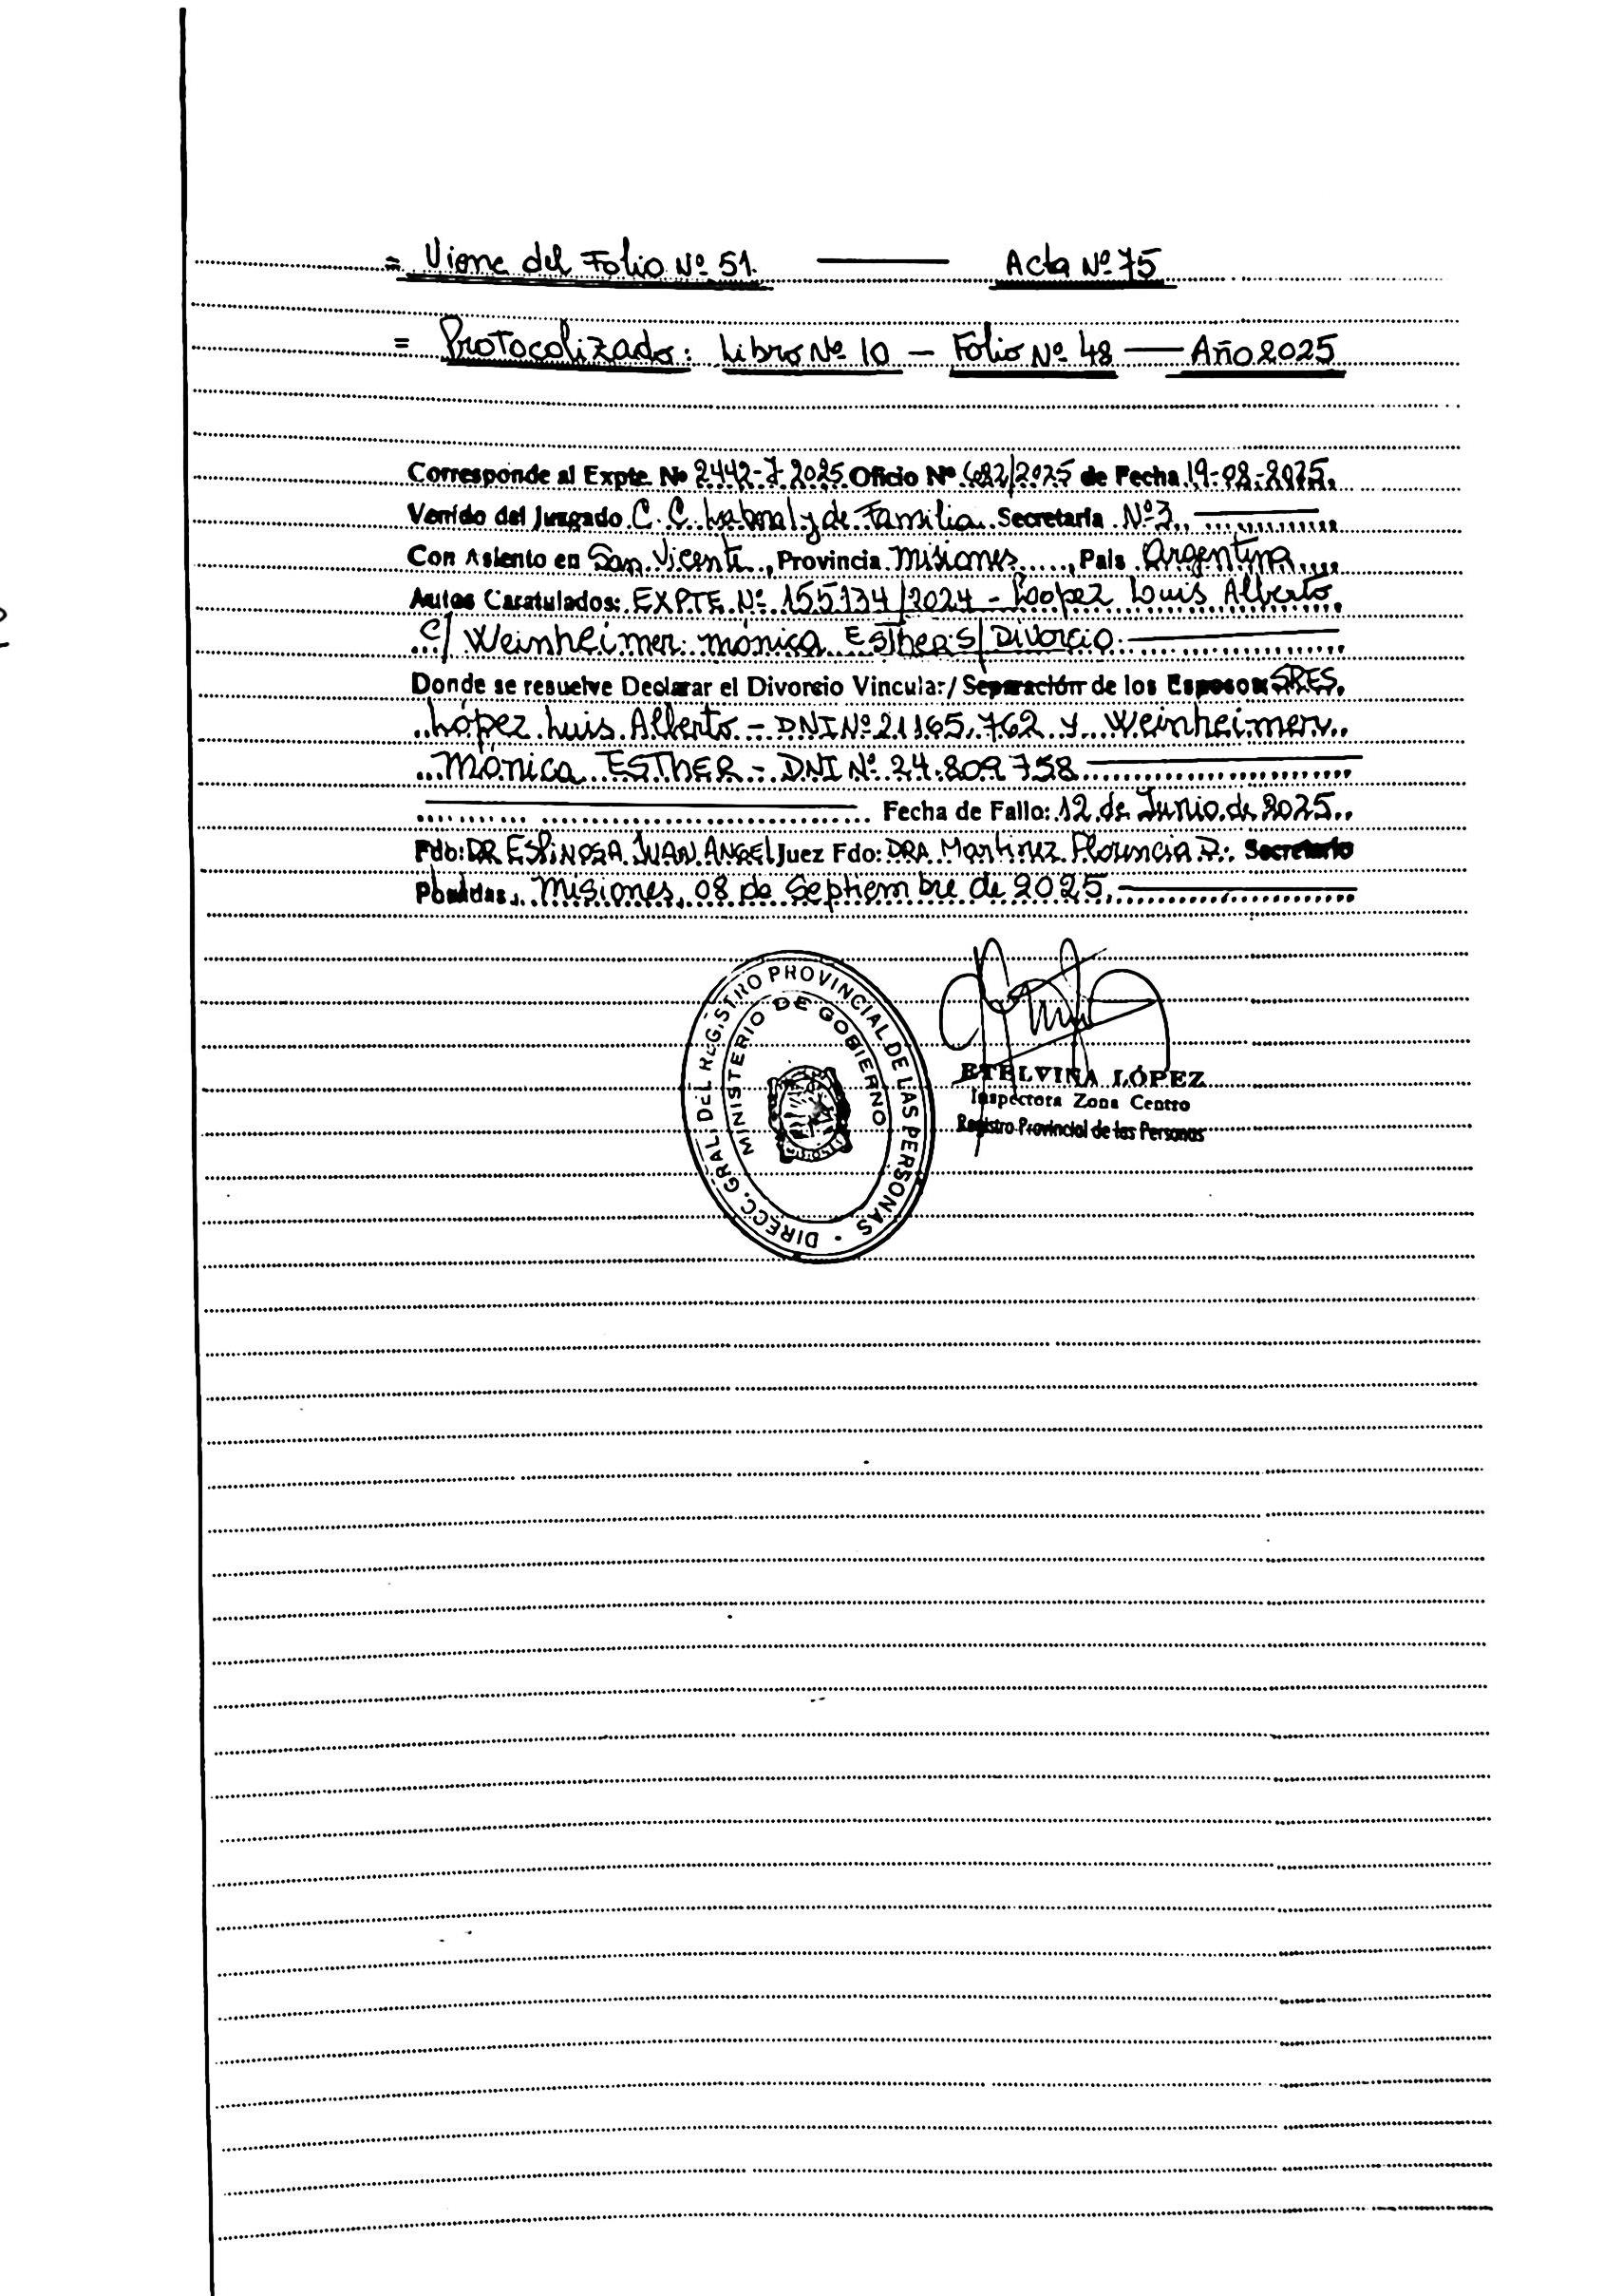 = Viene del Folio Nº 51. — Acta Nº 75
= Protocolizado: Libro Nº 10 — Folio Nº 48 — Año 2025
Corresponde al Expte Nº 2442-7-2025 Oficio Nº 682/2025 de Fecha 19-08-2025.
Venido del Juzgado C. C. Laboral y de Familia Secretaría Nº 3.
Con Asiento en San Vicente, Provincia Misiones, País Argentina
Autos Caratulados: EXPTE Nº 155134/2024 - Loopez Luis Alberto
C/ Weinheimer Mónica Esther S/ Divorcio.
Donde se resuelve Declarar el Divorcio Vincular/ Separación de los Esposos SRES.
López Luis Alberto - DNI Nº 21.165.762 y Weinheimer
Mónica ESTHER - DNI Nº 24.809758
Fecha de Fallo: 12 de Junio de 2025.
Fdo: DR ESPINOSA JUAN ANGEL Juez Fdo: DRA Martinez Florencia D. Secretario
Posadas, Misiones, 08 de Septiembre de 2025.
DIRECC. GRAL DEL REGISTRO PROVINCIAL DE LAS PERSONAS
MINISTERIO DE GOBIERNO
ETELVINA LÓPEZ
Inspectora Zona Centro
Registro Provincial de las Personas